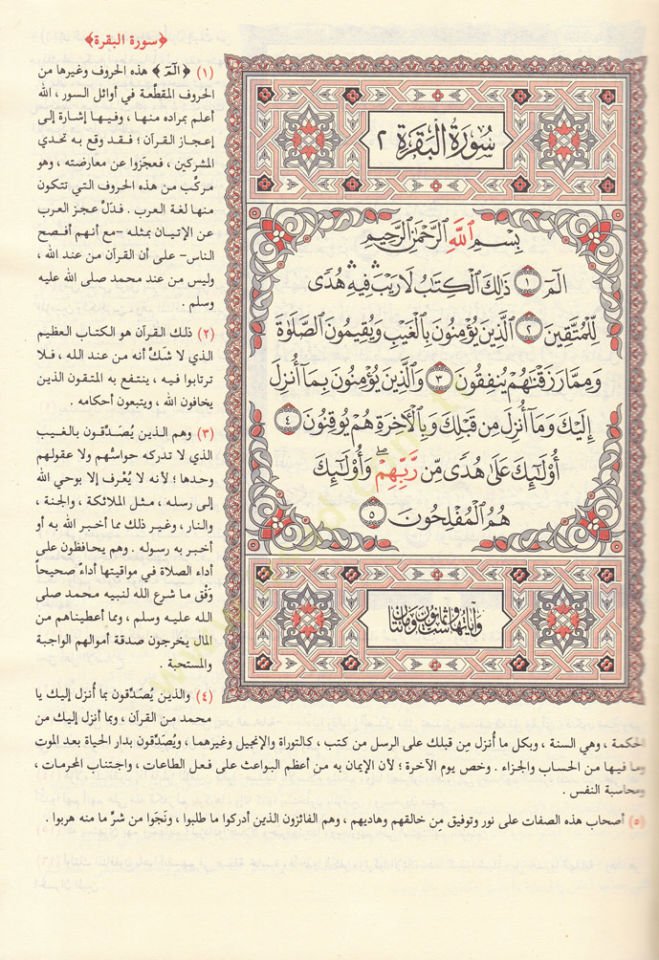 ﴿سورة البقرة﴾
سُورَةُ الْبَقَرَةِ ٢
بِسْمِ اللَّهِ الرَّحْمَٰنِ الرَّحِيمِ
الٓمٓ ١ ذَٰلِكَ الْكِتَابُ لَا رَيْبَ ۛ فِيهِ ۛ هُدًى
لِّلْمُتَّقِينَ ٢ الَّذِينَ يُؤْمِنُونَ بِالْغَيْبِ وَيُقِيمُونَ الصَّلَاةَ
وَمِمَّا رَزَقْنَاهُمْ يُنفِقُونَ ٣ وَالَّذِينَ يُؤْمِنُونَ بِمَا أُنزِلَ
إِلَيْكَ وَمَا أُنزِلَ مِن قَبْلِكَ وَبِالْآخِرَةِ هُمْ يُوقِنُونَ ٤
أُولَٰئِكَ عَلَىٰ هُدًى مِّن رَّبِّهِمْ ۖ وَأُولَٰئِكَ
هُمُ الْمُفْلِحُونَ ٥
وَآيَاتُهَا سِتٌّ وَثَمَانُونَ وَمِائَتَانِ
(١) ﴿الٓمٓ﴾ هذه الحروف وغيرها من
الحروف المقطّعة في أوائل السور ، الله
أعلم بمراده منها ، وفيها إشارة إلى
إعجاز القرآن ؛ فقد وقع به تحدي
المشركين ، فعجَزوا عن معارضته ، وهو
مركَّب من هذه الحروف التي تتكون
منها لغة العرب . فدَلَّ عجز العرب
عن الإتيان بمثله -مع أنهم أفصح
الناس- على أن القرآن من عند الله ،
وليس من عند محمد صلى الله عليه
وسلم .
(٢) ذلك القرآن هو الكتاب العظيم
الذي لا شكَّ أنه من عند الله ، فلا
ترتابوا فيه ، ينتفع به المتقون الذين
يخافون الله ، ويتبعون أحكامه .
(٣) وهم الذين يُصَدِّقون بالغيب
الذي لا تدركه حواسُّهم ولا عقولهم
وحدها ؛ لأنه لا يُعْرف إلا بوحي الله
إلى رسله ، مثل الملائكة ، والجنة ،
والنار ، وغير ذلك مما أخبر الله به أو
أخبر به رسوله . وهم يحافظون على
أداء الصلاة في مواقيتها أداءً صحيحاً
وَفْق ما شرع الله لنبيه محمد صلى
الله عليه وسلم ، ومما أعطيناهم من
المال يخرجون صدقة أموالهم الواجبة
والمستحبة .
(٤) والذين يُصَدِّقون بما أُنزل إليك يا
محمد من القرآن ، وبما أنزل إليك من
الحكمة ، وهي السنة ، وبكل ما أُنزل مِن قبلك على الرسل من كتب ، كالتوراة والإنجيل وغيرهما ، ويُصَدِّقون بدار الحياة بعد الموت
وما فيها من الحساب والجزاء . وخص يوم الآخرة ؛ لأن الإيمان به من أعظم البواعث على فعل الطاعات ، واجتناب المحرمات ،
ومحاسبة النفس .
(٥) أصحاب هذه الصفات على نور وتوفيق مِن خالقهم وهاديهم ، وهم الفائزون الذين أدركوا ما طلبوا ، ونَجَوا من شرِّ ما منه هربوا .